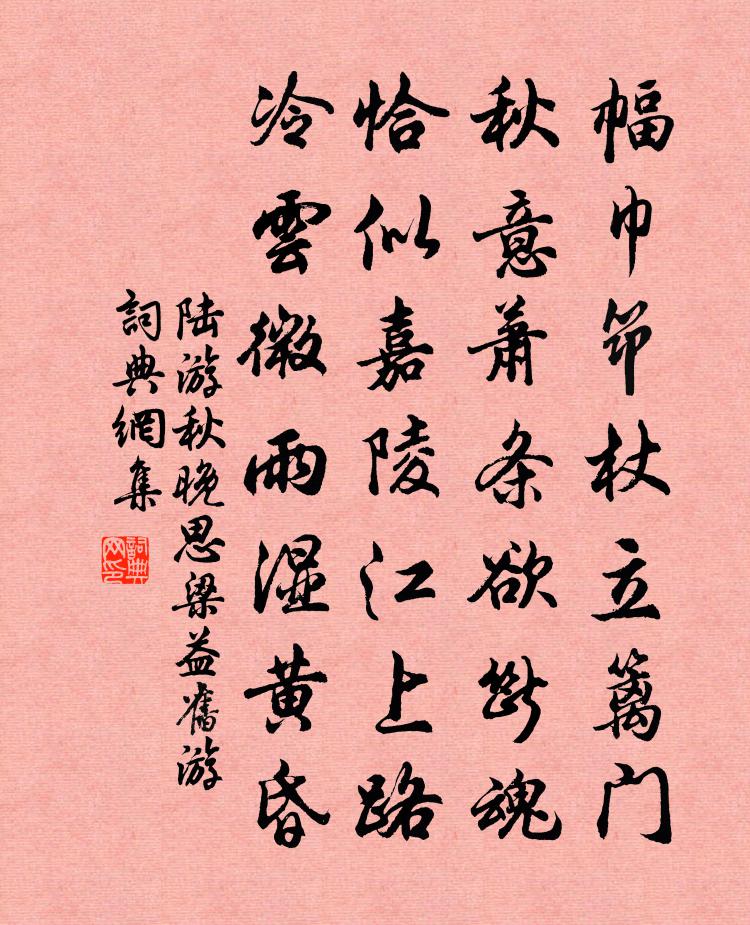 幅巾筇杖立篱門
秋意蕭条欲斷魂
恰似嘉陵江上路
冷雲微雨湿黄昏
陆游秋晚思梁益舊游
詞典網集
詞典网印